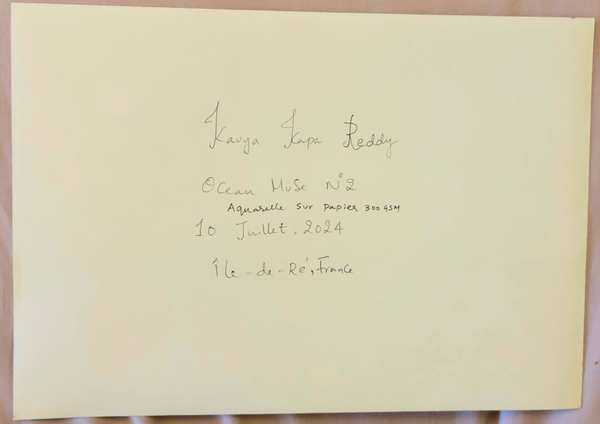 Kavya Kapa Reddy
Ocean Muse N°2
Aquarelle sur papier 300 GSM
10 Juillet, 2024
Île-de-Ré, France